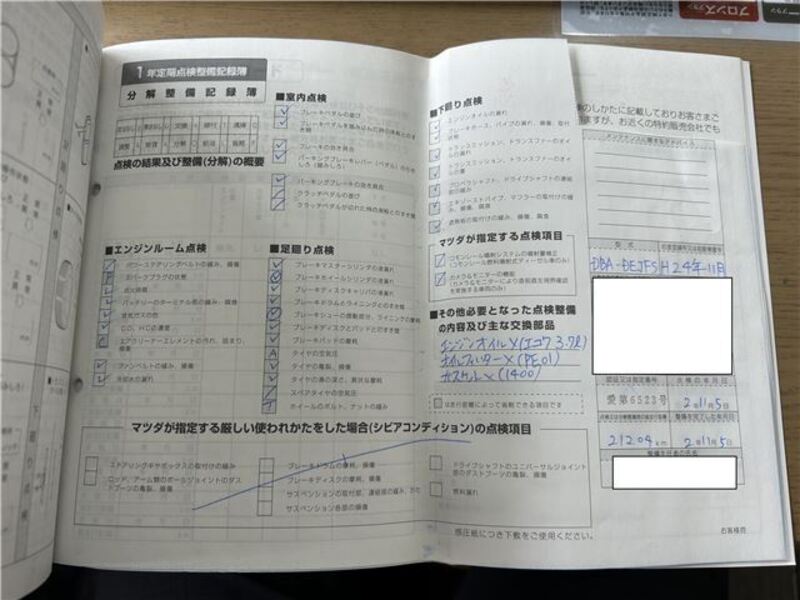 1年定期点検整備記録簿
分解整備記録簿
点検の結果及び整備(分解)の概要
■室内点検
ブレーキペダルの遊び
ブレーキペダルを踏み込んだ時の床板とのすき間
ブレーキの効き具合
パーキングブレーキレバー(ペダル)の引きしろ(踏みしろ)
パーキングブレーキの効き具合
クラッチペダルの遊び
クラッチペダルが切れた時の床板とのすき間
■エンジンルーム点検
パワーステアリングベルトの緩み、損傷
スパークプラグの状態
点火時期
バッテリーのターミナル部の緩み、腐食
排気ガスの色
CO、HCの濃度
エアクリーナーエレメントの汚れ、詰まり、損傷
ファンベルトの緩み、損傷
冷却水の漏れ
■足廻り点検
ブレーキマスターシリンダの液漏れ
ブレーキホイールシリンダの液漏れ
ブレーキディスクキャリパの液漏れ
ブレーキドラムとライニングとのすき間
ブレーキシューの摺動部分、ライニングの摩耗
ブレーキディスクとパッドとのすき間
ブレーキパッドの摩耗
タイヤの空気圧
タイヤの亀裂、損傷
タイヤの溝の深さ、異状な摩耗
スペアタイヤの空気圧
ホイールのボルト、ナットの緩み
■下廻り点検
エンジンオイルの漏れ
ブレーキホース、パイプの漏れ、損傷、取付状態
トランスミッション、トランスファーのオイルの漏れ
トランスミッション、トランスファーのオイルの量
プロペラシャフト、ドライブシャフトの連結部の緩み
エキゾーストパイプ、マフラーの取付けの緩み、損傷、腐食
遮熱板の取付けの緩み、損傷、腐食
マツダが指定する点検項目
コモンレール噴射システムの噴射量補正
(コモンレール燃料噴射式ディーゼル車のみ)
カメラ&モニターの機能
(カメラ&モニターにより直前直左視界確認を実施する車両のみ)
■その他必要となった点検整備の内容及び主な交換部品
エンジンオイル×(エコワ 3.7ℓ)
オイルフィルター×(PE01)
ガスケット×(1400)
は走行距離によって省略できる項目です
マツダが指定する厳しい使われかたをした場合(シビアコンディション)の点検項目
ステアリングギヤボックスの取付けの緩み
ロッド、アーム類のボールジョイントのダストブーツの亀裂、損傷
ブレーキドラムの摩耗、損傷
ブレーキディスクの摩耗、損傷
サスペンションの取付部、連結部の緩み、がた
サスペンション各部の損傷
ドライブシャフトのユニバーサルジョイント部のダストブーツの亀裂、損傷
燃料漏れ
感圧紙につき下敷をご使用ください。
のしかたに記載しておりお客さまご
ますが、お近くの特約販売会社でも
メンテナンスに関するアドバイス
型式
DBA-DEJFS
H24年11月
愛第6523号
点検の年月日
2011月5日
整備を完了した年月日
21204km
2011月5日
整備主任者の氏名
お客様用
ブロンズプラン